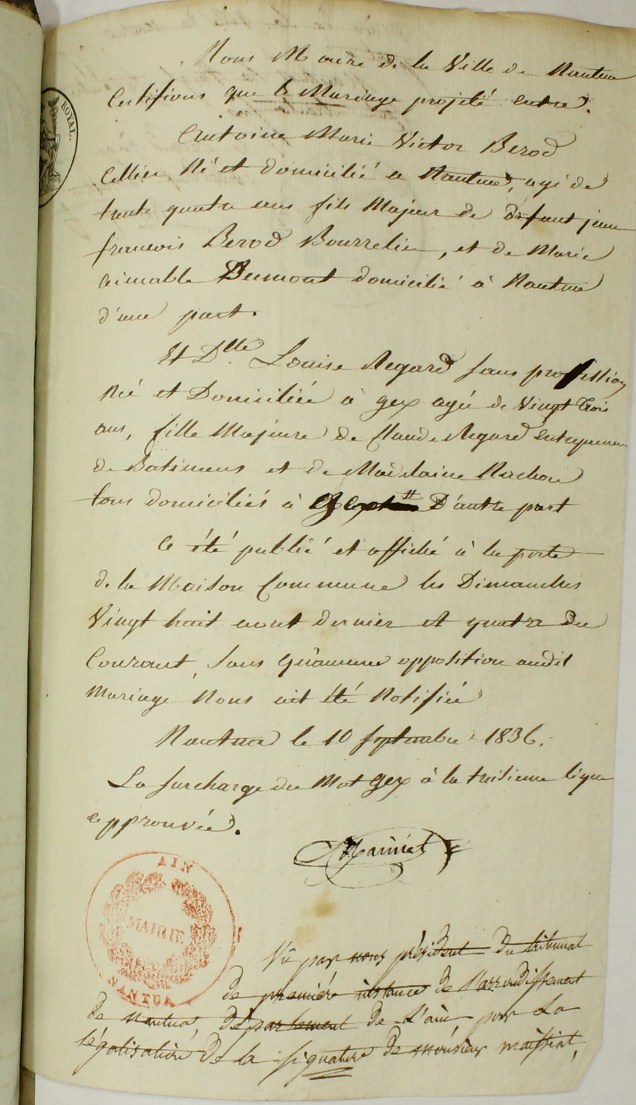 ROYAL.
Nous Maire de la Ville de Nantua
Certifions que le Mariage projeté entre.
Antoine Marie Victor Berod
Sellier Né et domicilié a Nantua, agé de
trente quatre ans fils Majeur de défunt jean
francois Berod Bourrelier, et de Marie
aimable Dumont domicilié à Nantua
d'une part.
Et Dlle Louise Regard sans profession
Né et Domiciliée à gex agée de Vingt trois
ans, fille Majeure de Claude Regard entrepreneur
de Batimens et de Madelaine Rochon
tous domiciliés à gex D'autre part
a été publié et affiché à la porte
de la Maison Commune les Dimanches
Vingt huit aout dernier et quatre du
Courant, sans qu'aucune opposition audit
Mariage Nous ait été Notifiée
Nantua le 10 septembre 1836.
La surcharge du Mot gex à la troisieme ligne
approuvée.
AIN
MAIRIE
NANTUA
Vû par nous président du tribunal
de première instance de l'arrondissement
de nantua, département de l'ain pour la
légalisation de la signature de monsieur maissiat,